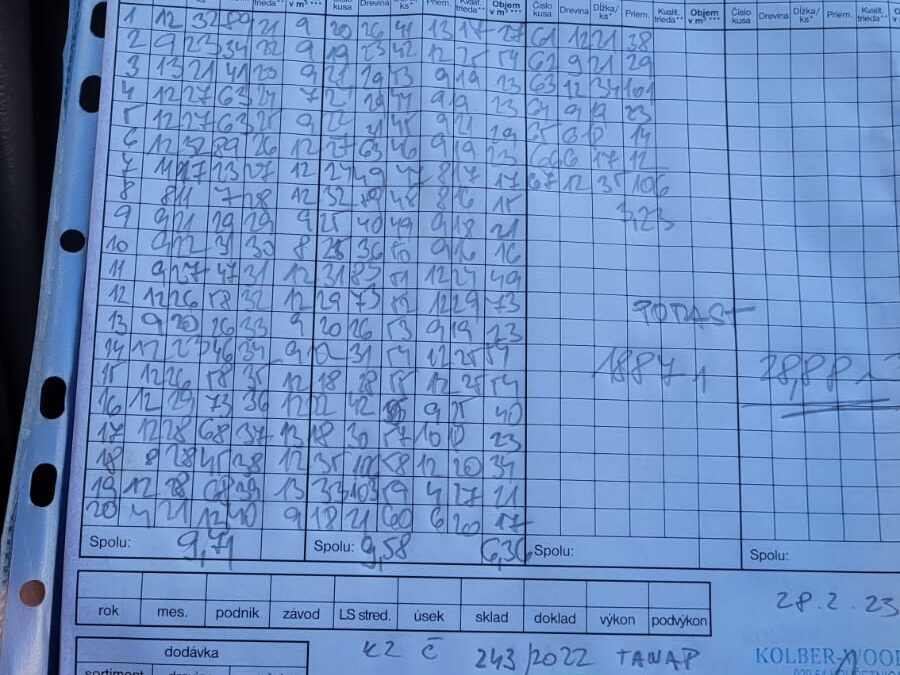 Číslo kusa Drevina Dĺžka/ ks* Priem. Kvalit. trieda** Objem v m³ ***
1 12 32 89 21 9 20 26 41 13 17 27 61 12 21 38
2 9 23 34 22 9 19 23 42 12 25 54 62 9 21 29
3 13 21 41 23 9 21 29 43 9 19 23 63 12 34 101
4 12 27 63 24 7 21 29 44 9 19 23 64 9 19 23
5 12 27 63 25 9 22 31 45 9 21 29 65
6 12 32 89 26 12 27 63 46 9 19 23 66 6 17 12
7 11 17 23 27 12 24 49 47 8 17 17 67 12 35 106
8 8 11 7 28 12 32 89 48 8 16 15
3,23
9 9 21 29 29 9 25 40 49 9 18 21
10 9 22 31 30 8 25 36 50 9 16 16
11 9 27 47 31 12 31 83 51 12 24 49
12 12 26 58 32 12 29 73 52 12 29 73
13 9 20 26 33 9 20 26 53 9 19 23
14 12 23 46 34 9 22 31 54 12 25 54
15 12 26 58 35 12 18 28 55 12 25 54
1887 28,88
16 12 29 73 36 12 22 42 56 9 25 40
17 12 28 68 37 13 18 30 57 10 18 23
18 8 28 45 38 12 35 106 58 12 20 34
19 12 28 68 39 13 33 103 59 4 27 21
20 4 21 12 40 9 18 21 60 6 20 17
Spolu: 9,71 Spolu: 9,58 6,36 Spolu: Spolu:
28.2.23
rok mes. podnik závod LS stred. úsek sklad doklad výkon podvýkon
dodávka
KZ č 243/2022 TANAP
KOLBER-WOOD